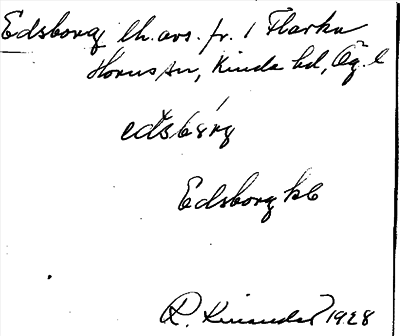 Edsborg lh. avs. fr. 1 Flarka
Horns sn, Kinda hd, Ög. l
edsbårg
Edsborg kb
R. Kinander 1928